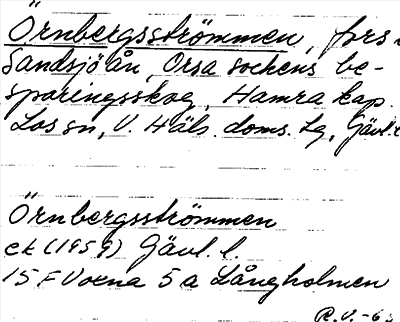 Örnbergsströmmen, fors
Sandsjöån, Orsa sockens be-
sparingsskog, Hamra kap.
Los sn, V. Häls. doms. lg, Gävl.
Örnbergsströmmen
ek (1959) Gävl. l.
15 F Voxna 5 a Långholmen
R.V. -6